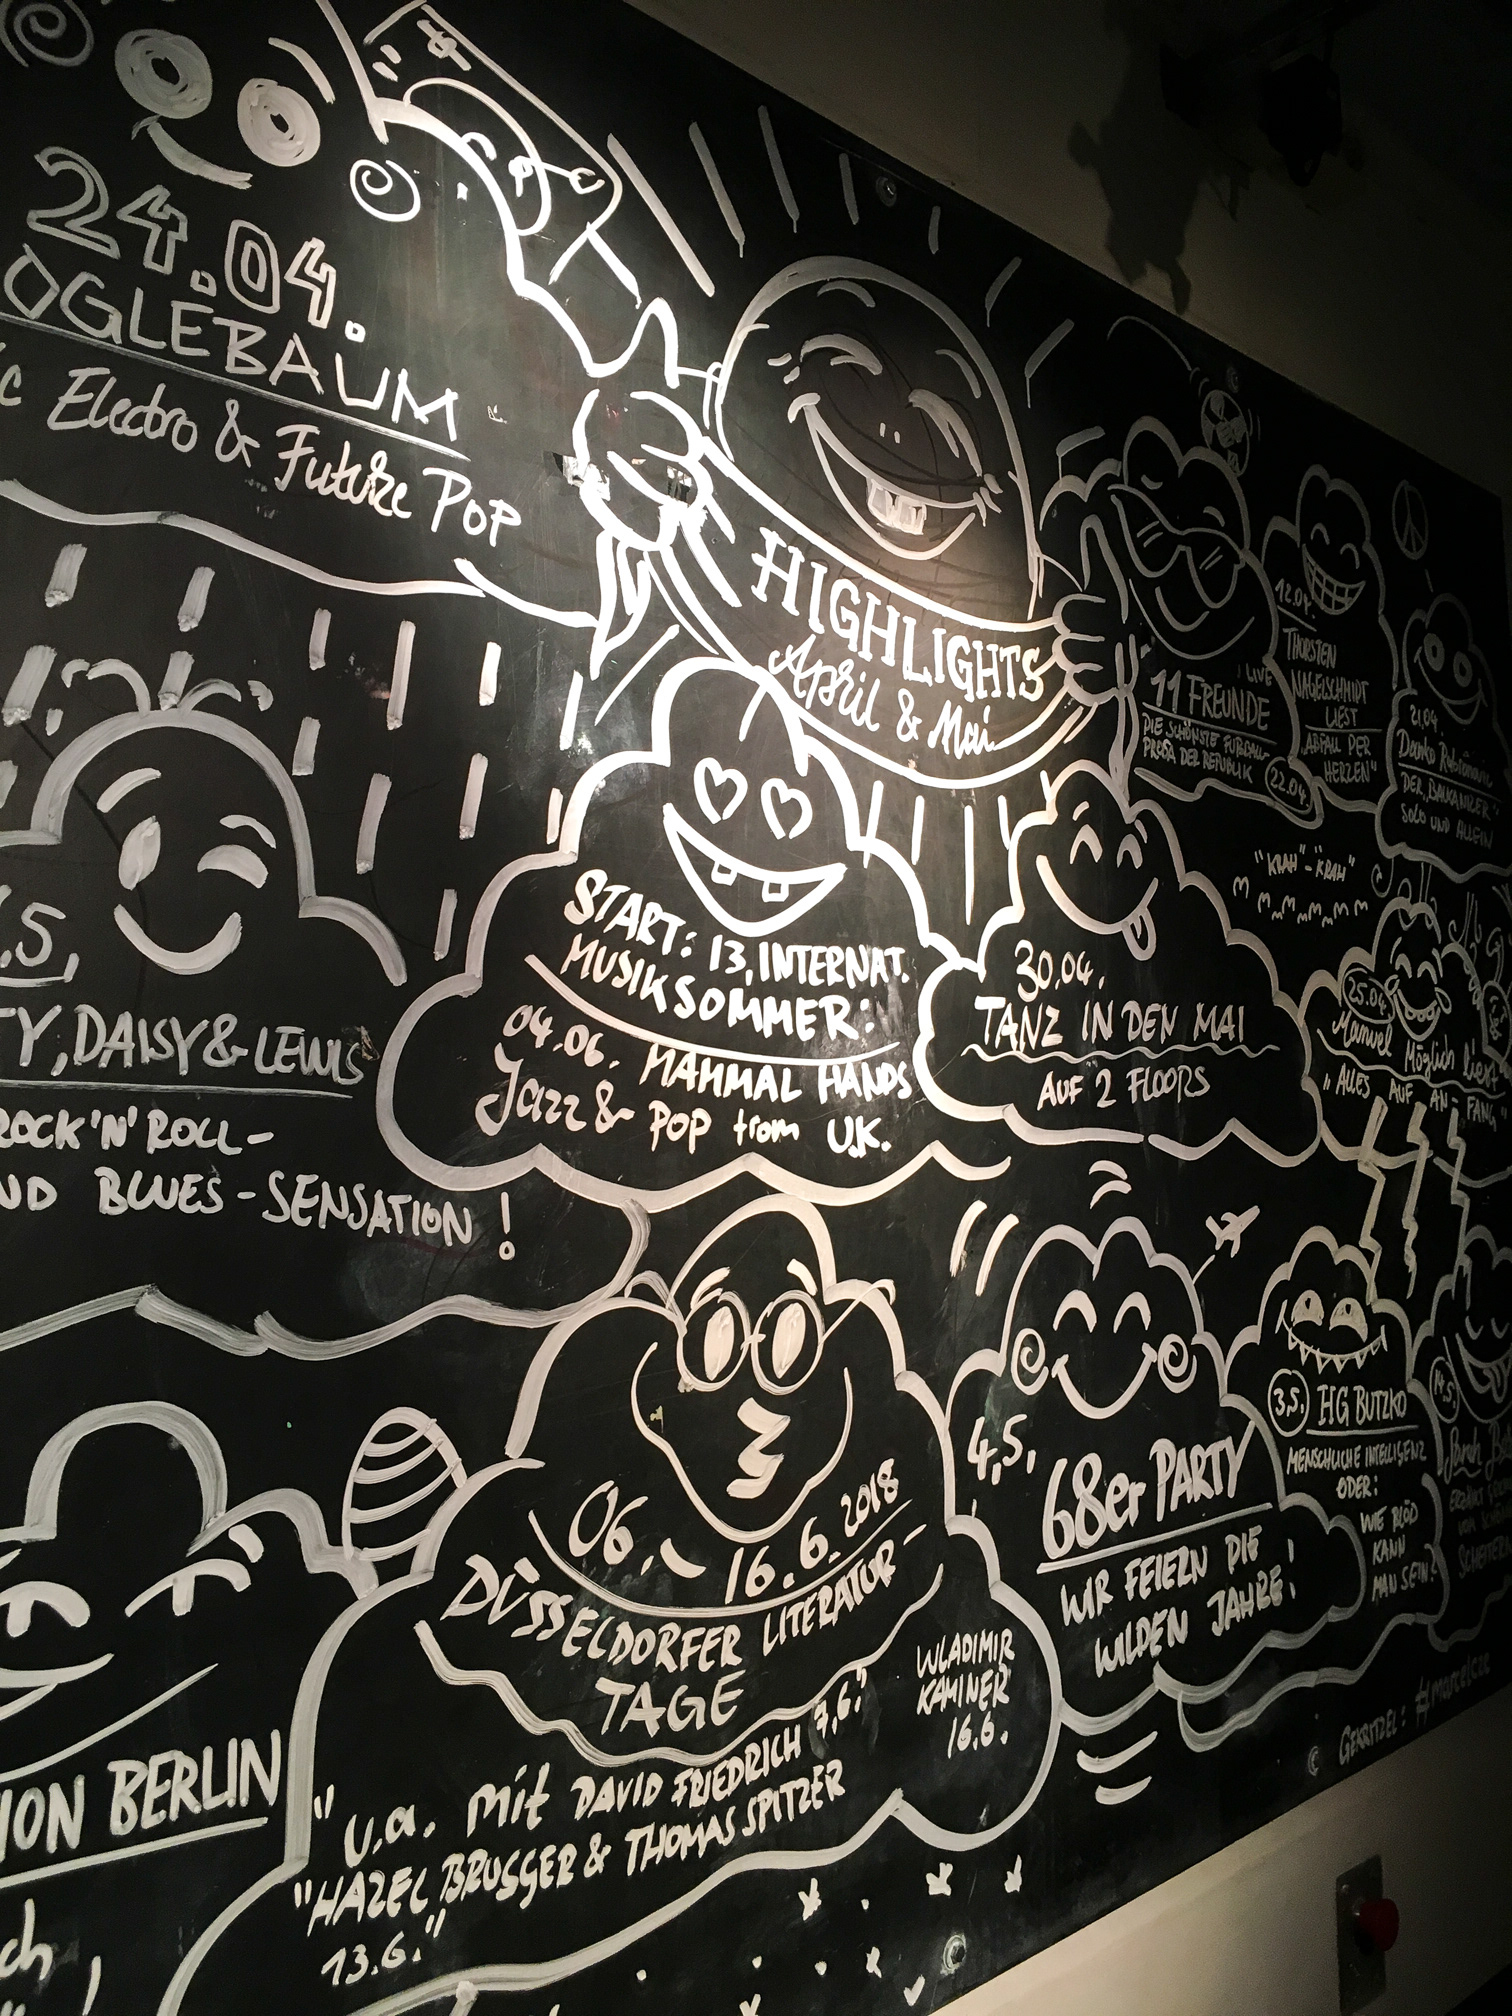 24.04.
OGLEBAUM
Electro & Future POP
HIGHLIGHTS
April & Mai
LIVE
11 FREUNDE
DIE SCHÖNSTE FUßBALL-
PROSA DER REPUBLIK
22.04.
12.04.
THORSTEN
NAGELSCHMIDT
LIEST
"ABFALL DER
HERZEN"
21.04.
DER "BAUKANZLER"
SOLO UND ALLEIN
"KRAH"-"KRAH"
.5.
TY, DAISY & LEWIS
ROCK'N'ROLL-
ND BLUES-SENSATION!
START: 13. INTERNAT.
MUSIKSOMMER:
04.06. MAMMAL HANDS
Jazz & POP from U.K.
30.04.
TANZ IN DEN MAI
AUF 2 FLOORS
25.04.
Manuel Möglich liest
"ALLES AUF AN-FANG
06. - 16.6.2018
DÜSSELDORFER LITERATUR-
TAGE
"u.a. mit DAVID FRIEDRICH 7.6."
"HAZEL BRUGGER & THOMAS SPITZER
13.6."
WLADIMIR
KAMINER
16.6.
4.5.
68er PARTY
WIR FEIERN DIE
WILDEN JAHRE!
3.5.
HG BUTZKO
MENSCHLICHE INTELLIGENZ
ODER:
WIE BLÖD
KANN
MAN SEIN?
14.5.
ION BERLIN
ch
© GEKRITZEL: